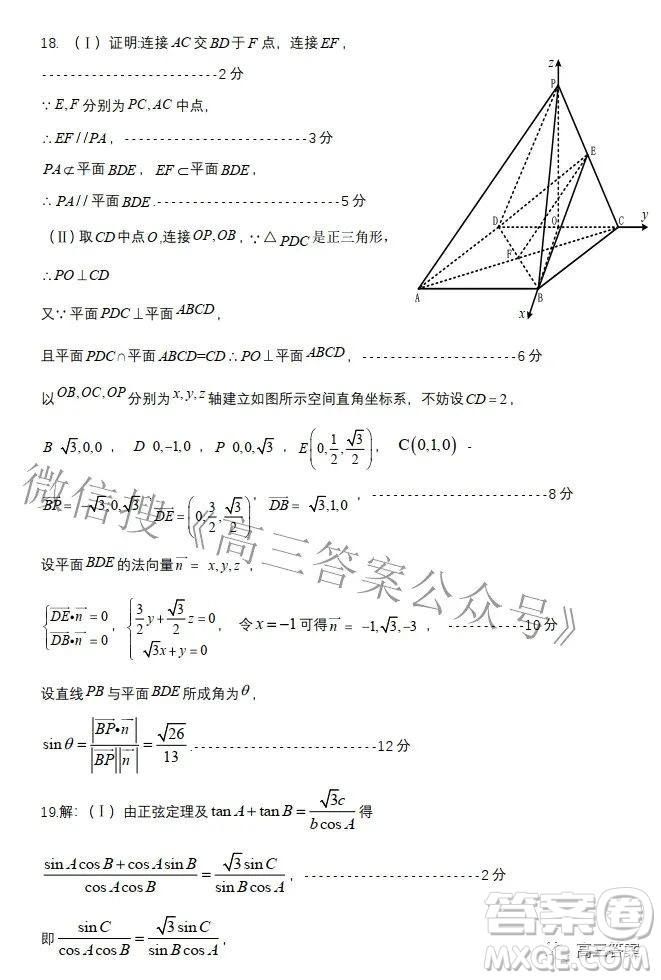 18. （Ⅰ）证明:连接 AC 交 BD 于 F 点，连接 EF，
-------------------------2 分
∵ E, F 分别为 PC, AC 中点，
∴ EF // PA，--------------------------3 分
PA ⊄ 平面 BDE， EF ⊂ 平面 BDE，
∴ PA // 平面 BDE .--------------------------5 分
（Ⅱ）取 CD 中点 O ,连接 OP, OB，∵ △ PDC 是正三角形，
∴ PO ⊥ CD
又∵ 平面 PDC ⊥ 平面 ABCD，
且平面 PDC ∩ 平面 ABCD=CD ∴ PO ⊥ 平面 ABCD，----------------------6 分
以 OB, OC, OP 分别为 x, y, z 轴建立如图所示空间直角坐标系，不妨设 CD = 2，
B √3,0,0 ， D 0,−1,0 ， P 0,0,√3 ， E(0, 1/2, √3/2)， C(0,1,0) -
BP= −√3,0,√3, DE = (0, 3/2, √3/2)， DB = √3,1,0 ，-------------------------8 分
设平面 BDE 的法向量 n = x, y, z ，
{DE•n = 0 DB•n = 0， {3/2 y + √3/2 z = 0 √3x + y = 0， 令 x = −1 可得 n = −1,√3,−3 ，-----------10 分
设直线 PB 与平面 BDE 所成角为 θ，
sin θ = |BP•n| / |BP||n| = √26/13 .--------------------------12 分
19.解：（Ⅰ）由正弦定理及 tan A + tan B = √3c / b cos A 得
sin A cos B + cos A sin B / cos A cos B = √3 sin C / sin B cos A ，-------------------------2 分
即 sin C / cos A cos B = √3 sin C / sin B cos A，
z
P
E
D
O
C
y
F
A
B
x
微信搜《高三答案公众号》
答案卷
高三答案
MXQE.COM